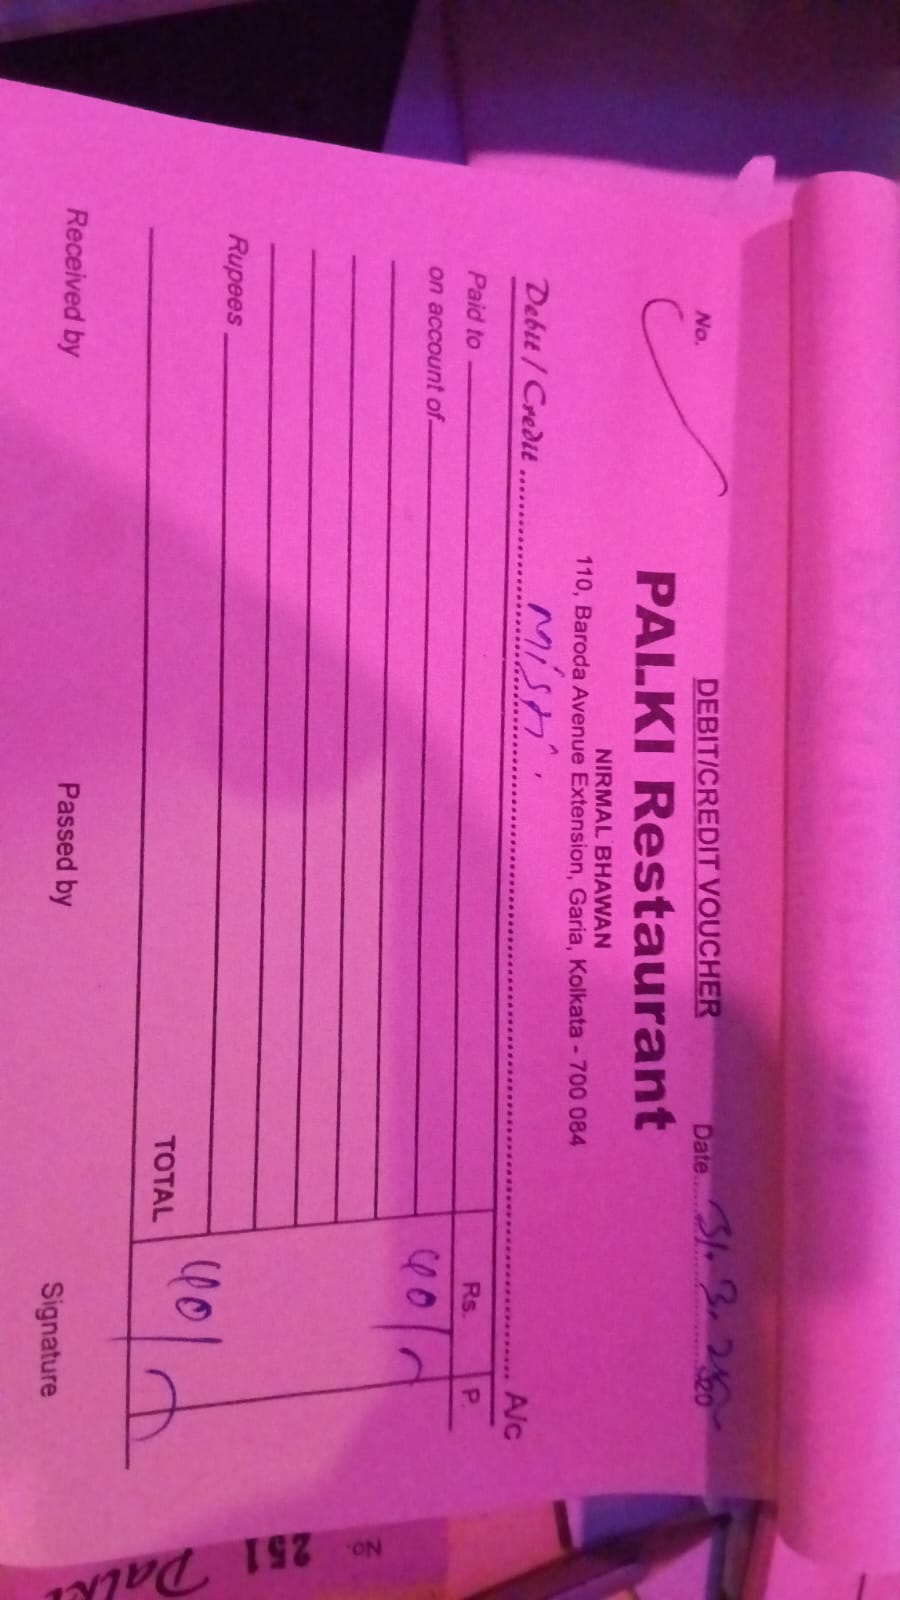 DEBIT/CREDIT VOUCHER
No.
Date 31.3.
PALKI Restaurant
NIRMAL BHAWAN
110, Baroda Avenue Extension, Garia, Kolkata - 700 084
Debit / Credit ........ Misti ........ A/c
Paid to
Rs. P.
on account of
40/-
Rupees
TOTAL 40/-
Received by Passed by Signature
No. 251
Palki